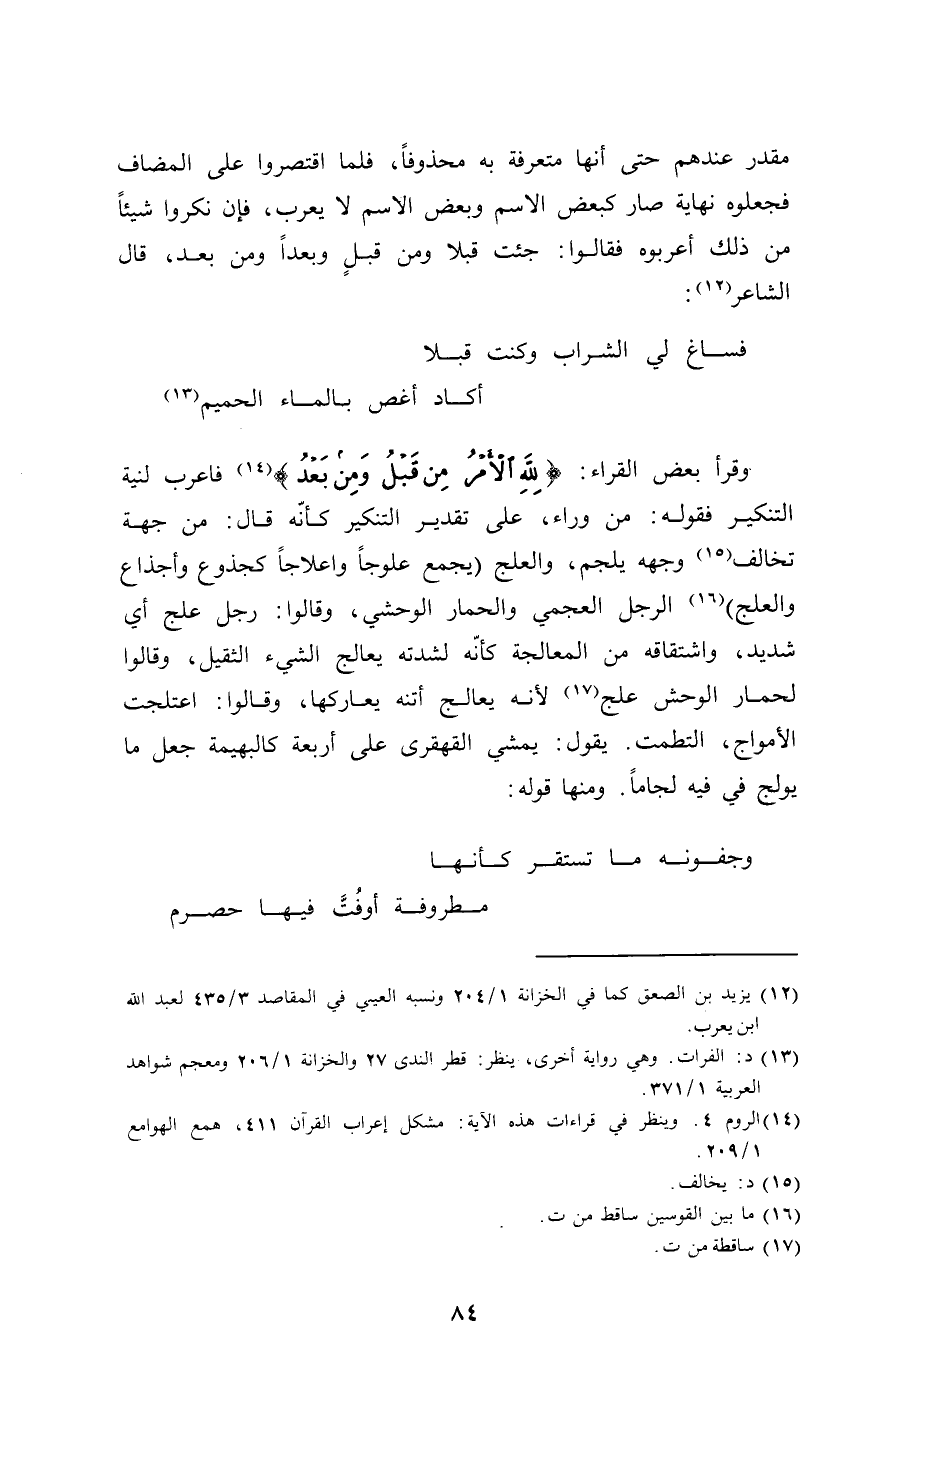 مقدر عندهم حتى أنها متعرفة به محذوفاً، فلما اقتصروا على المضاف
فجعلوه نهاية صار كبعض الاسم وبعض الاسم لا يعرب، فإن نكروا شيئاً
من ذلك أعربوه فقالوا: جئت قبلا ومن قبلٍ وبعداً ومن بعد، قال
الشاعر(١٢):
فساغ لي الشراب وكنت قبلا
أكاد أغص بالماء الحميم(١٣)
وقرأ بعض القراء: ﴿لِلَّهِ ٱلْأَمْرُ مِن قَبْلُ وَمِنۢ بَعْدُ﴾(١٤) فاعرب لنية
التنكير فقوله: من وراء، على تقدير التنكير كأنّه قال: من جهة
تخالف(١٥) وجهه يلجم، والعلج (يجمع علوجاً واعلاجاً كجذوع وأجذاع
والعلج)(١٦) الرجل العجمي والحمار الوحشي، وقالوا: رجل علج أي
شديد، واشتقاقه من المعالجة كأنّه لشدته يعالج الشيء الثقيل، وقالوا
لحمار الوحش علج(١٧) لأنه يعالج أتنه يعاركها، وقالوا: اعتلجت
الأمواج، التطمت. يقول: يمشي القهقرى على أربعة كالبهيمة جعل ما
يولج في فيه لجاماً. ومنها قوله:
وجفونه ما تستقر كأنها
مطروفة أوفُتَّ فيها حصرم
(١٢) يزيد بن الصعق كما في الخزانة ٢٠٤/١ ونسبه العيي في المقاصد ٤٣٥/٣ لعبد الله
ابن يعرب.
(١٣) د: الفرات. وهي رواية أخرى، ينظر: قطر الندى ٢٧ والخزانة ٢٠٦/١ ومعجم شواهد
العربية ٣٧١/١.
(١٤)الروم ٤. وينظر في قراءات هذه الآية: مشكل إعراب القرآن ٤١١، همع الهوامع
٢٠٩/١.
(١٥) د: يخالف.
(١٦) ما بين القوسين ساقط من ت.
(١٧) ساقطة من ت.
٨٤